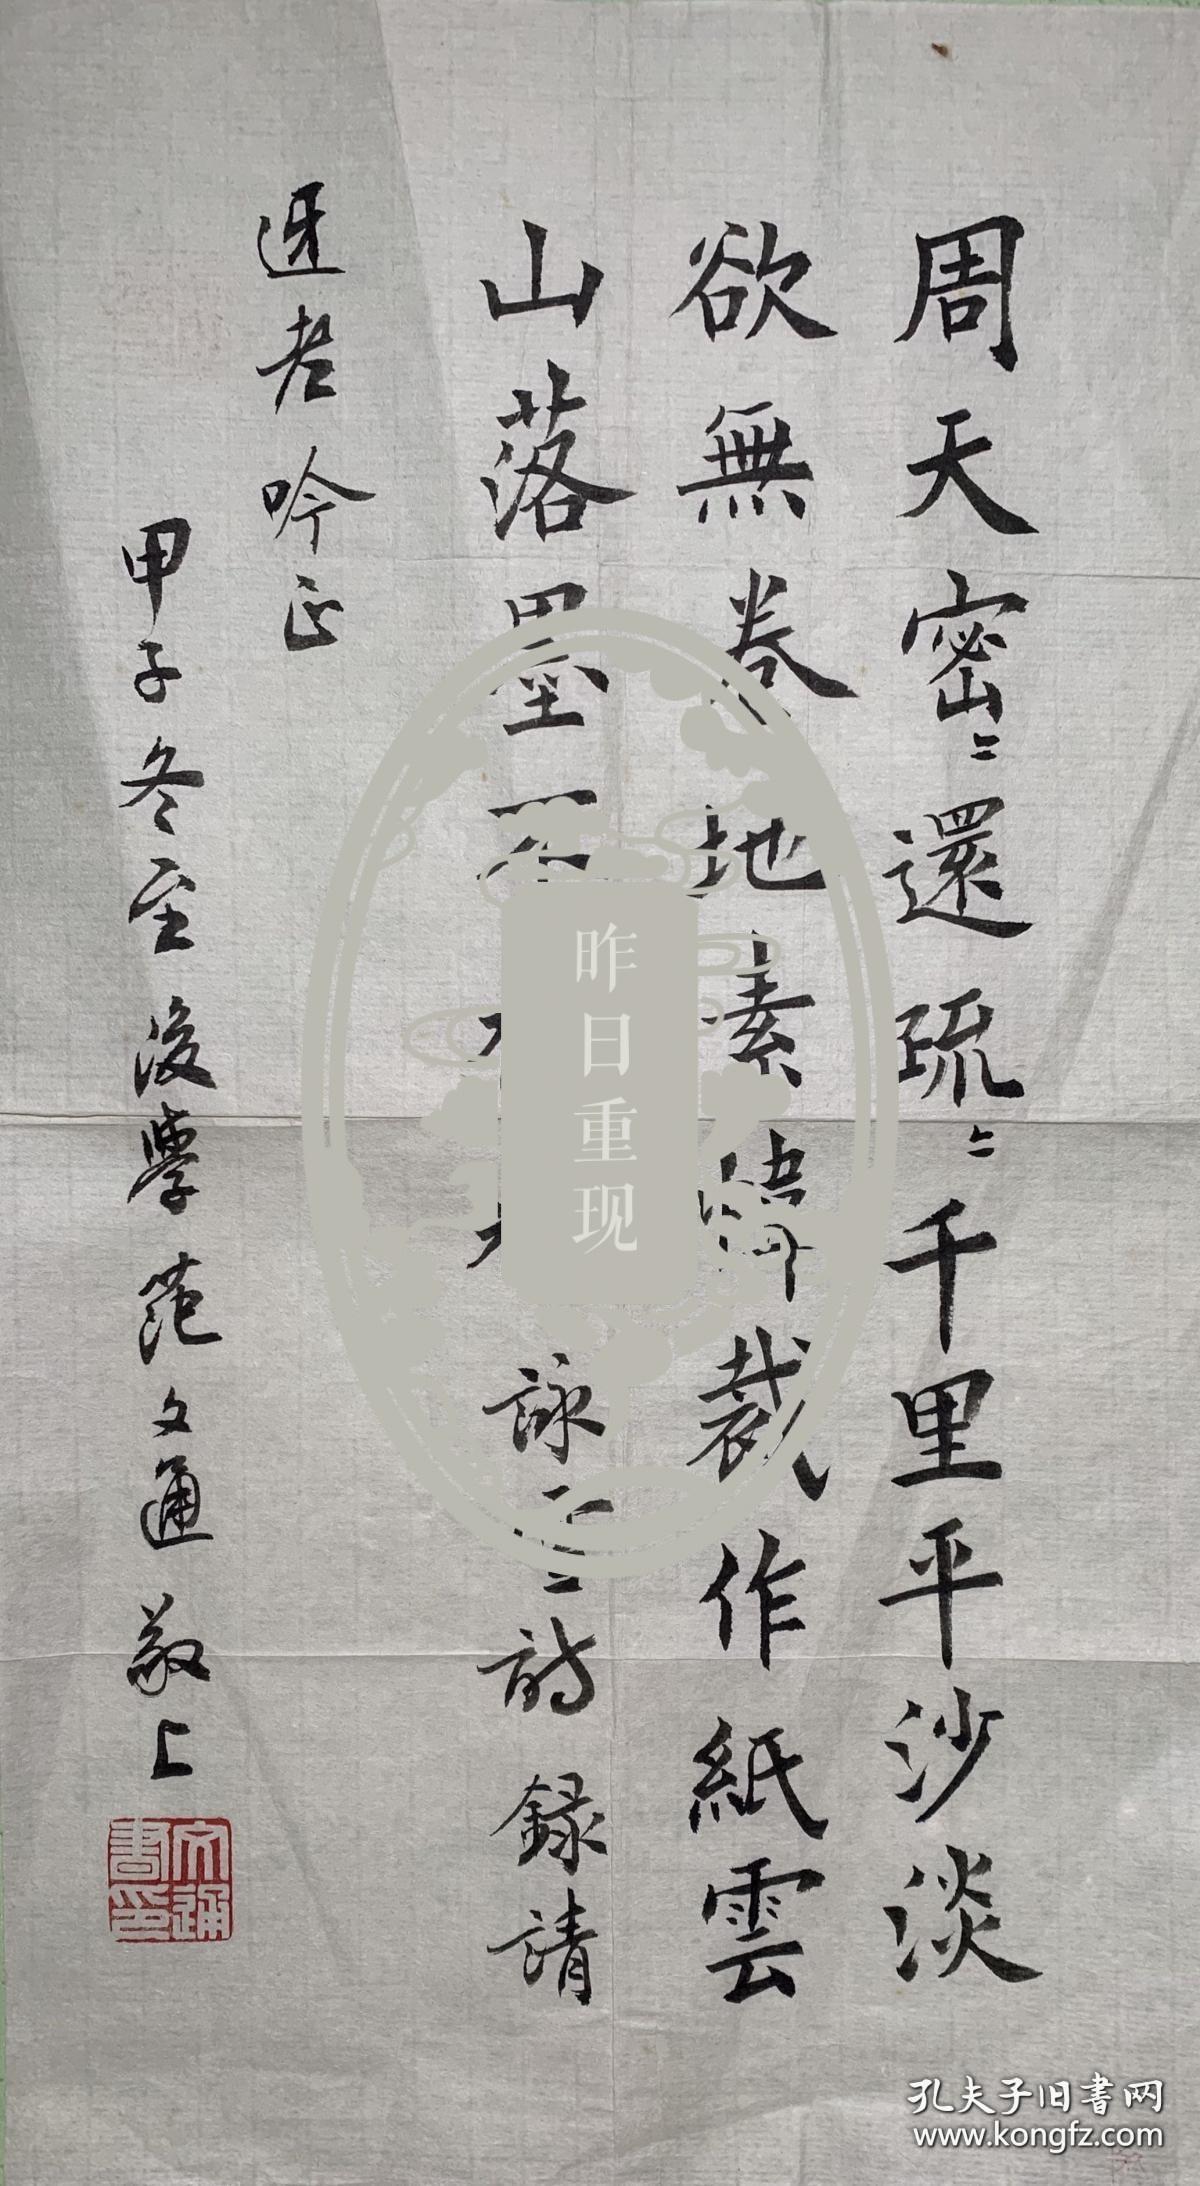 周天密〻還疏〻千里平沙淡
欲無卷地素 裁作紙雲
山落墨不 詠雪詩錄請
迓老吟正
甲子冬至後學范文通敬上
文通書印
昨日重现
孔夫子旧書网
www.kongfz.com